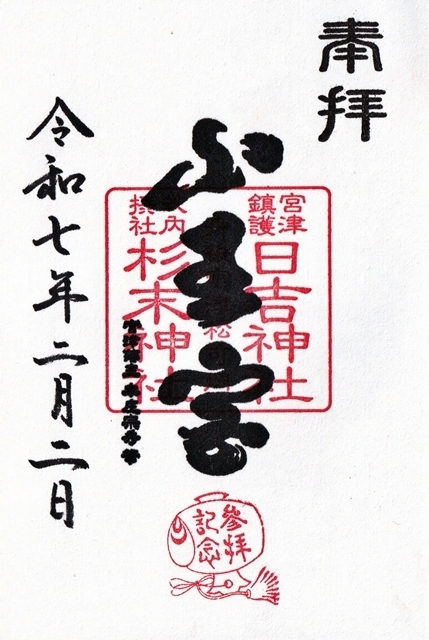 奉拝
山王宮
宮津
鎮護
日吉神社
境内
摂社
杉末神社
令和七年二月二日
参拝
記念